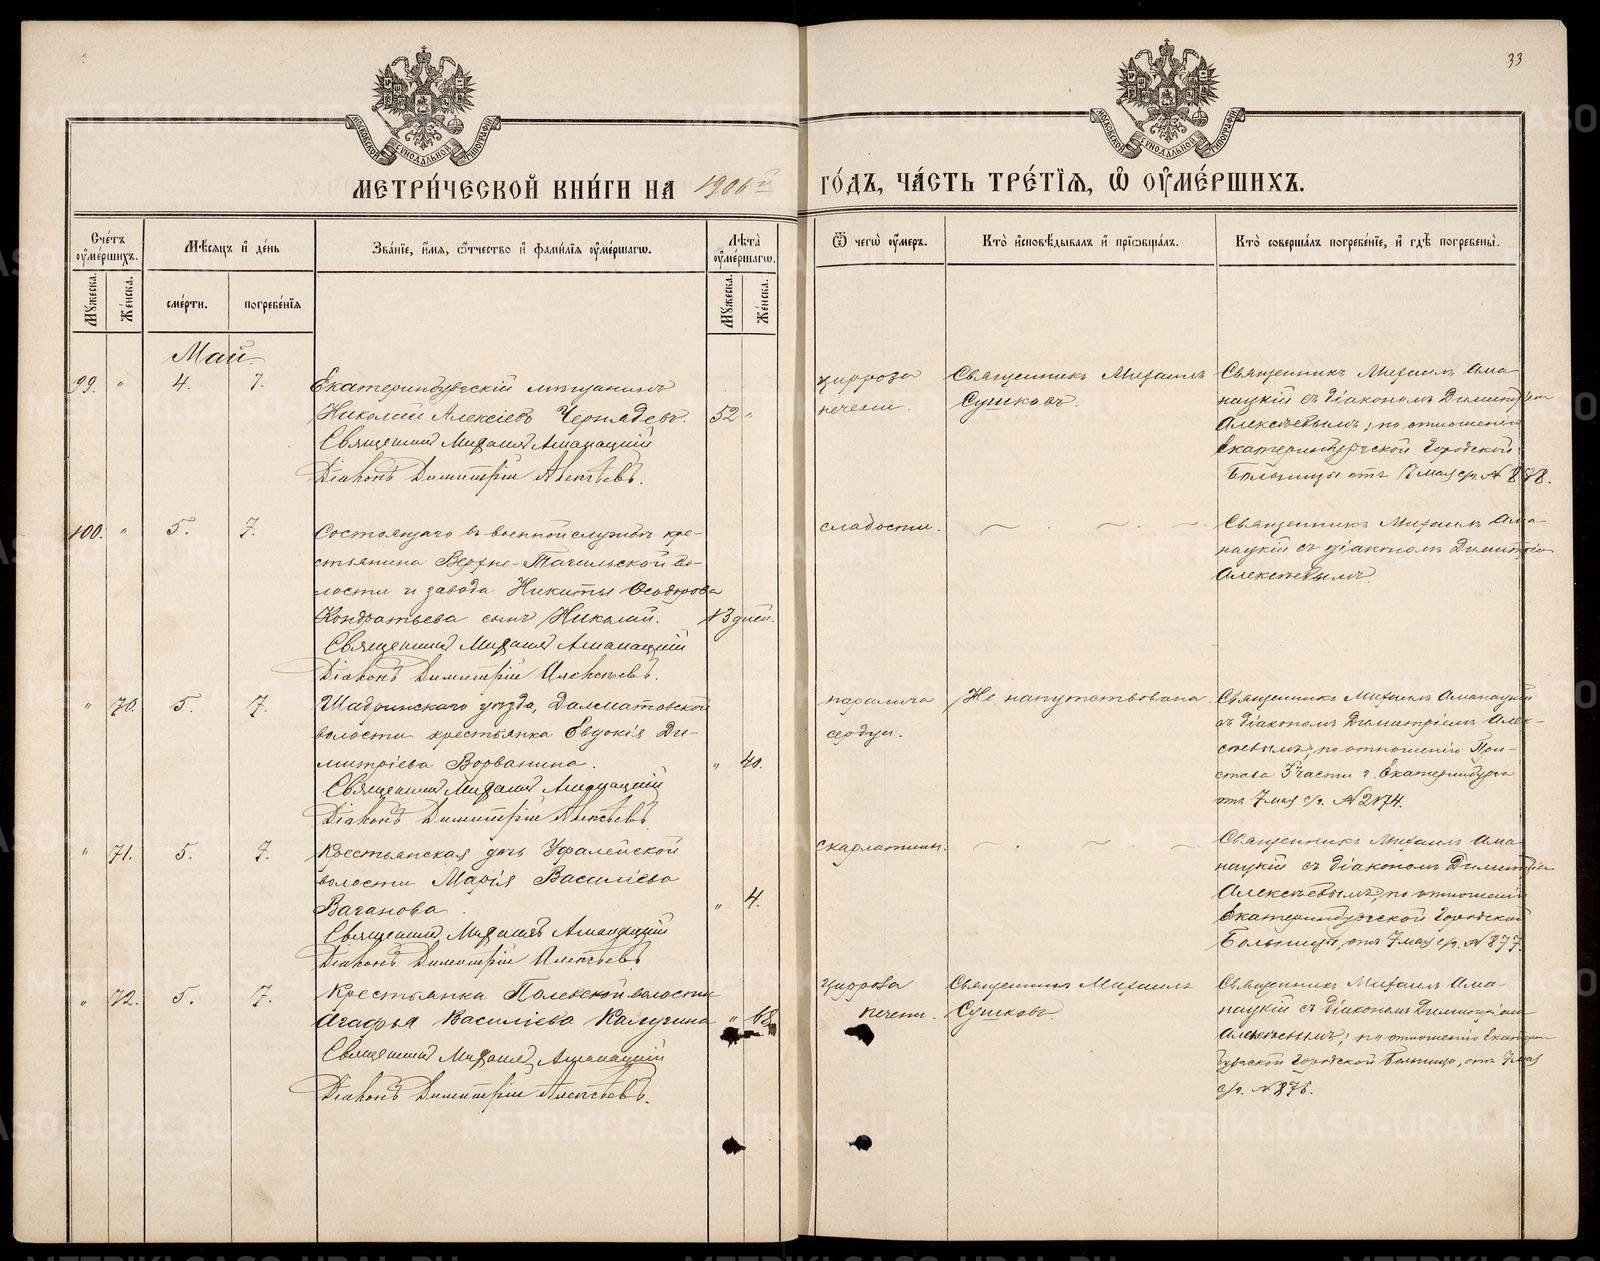 33
МОСКОВСКОЙ СѴНОДАЛЬНОЙ ТИПОГРАФІИ
МОСКОВСКОЙ СѴНОДАЛЬНОЙ ТИПОГРАФІИ
МЕТРИ́ЧЕСКОЙ КНИ́ГИ НА 1906 й ГО́ДЪ, ЧА́СТЬ ТРЕ́ТЇѦ, Ѽ ОУ҆МЕ́РШИХЪ.
Сче́тъ оу҆ме́ршихъ.
Мѣ́сяцъ и҆ де́нь
Зва́нїе, и҆́мѧ, ѻ҆́тчество и҆ фамилїѧ оу҆ме́ршагѡ.
Лѣ́та оу҆ме́ршагѡ.
Ѿ чегѡ̀ оу҆́меръ.
Кто̀ и҆сповѣ́дывалъ и҆ прїѡбща́лъ.
Кто̀ соверша́лъ погребе́нїе, и҆ гдѣ̀ погребены̀.
Мꙋ́жеска.
Же́нска.
сме́рти.
погребе́нїѧ
Мꙋ́жеска.
Же́нска.
Май
99. " 4. 7. Екатеринбургскій мѣщанинъ
Николай Алексіевъ Чернядевъ. 52 "
Священникъ Михаилъ Аманацкій
Діаконъ Димитрій Алексѣевъ.
цирроза
печени.
Священникъ Михаилъ
Сушковъ.
Священникъ Михаилъ Ама-
нацкій съ діакономъ Димитріем
Алексѣевымъ, по отношенію
Екатеринбургской Городской
Больницы отъ 7 мая с/г. № 878.
100. " 5. 7. Состоящаго въ военной службѣ кре-
стьянина Верхне-Тагильской во-
лости и завода Никиты Ѳеодорова
Кондратьева сынъ Николай. 13 дней.
Священникъ Михаилъ Аманацкій
Діаконъ Димитрій Алексѣевъ.
слабости.
Священникъ Михаилъ Ама-
нацкій съ діакономъ Димитріем
Алексѣевымъ.
" 70. 5. 7. Шадринскаго уѣзда, Далматовской
волости крестьянка Евдокія Ди-
митріева Ворванина. " 40.
Священникъ Михаилъ Аманацкій
Діаконъ Димитрій Алексѣевъ
паралича
сердца.
Не напутствована.
Священникъ Михаилъ Аманацкій
съ діакономъ Димитріемъ Алек-
сѣевымъ, по отношенію При-
става 3 части г. Екатеринбурга
отъ 7 мая с/г. № 2174.
" 71. 5. 7. Крестьянская дочь Уфалейской
волости Марія Василіева
Ваганова. " 4.
Священникъ Михаилъ Аманацкій
Діаконъ Димитрій Алексѣевъ.
скарлатины.
Священникъ Михаилъ Ама-
нацкій съ діакономъ Димитріем
Алексѣевымъ, по отношенію
Екатеринбургской Городской
Больницы, отъ 7 мая с/г. № 877.
" 72. 5. 7. Крестьянка Полевской волости
Агафья Василіева Калугина " 68.
Священникъ Михаилъ Аманацкій
Діаконъ Димитрій Алексѣевъ.
цирроза
печени.
Священникъ Михаилъ
Сушковъ.
Священникъ Михаилъ Ама-
нацкій съ діакономъ Димитріем
Алексѣевымъ, по отношенію Екатерин-
бургской Городской Больницы, отъ 7 мая
с/г. № 876.
METRIKI.GASO-URAL.RU